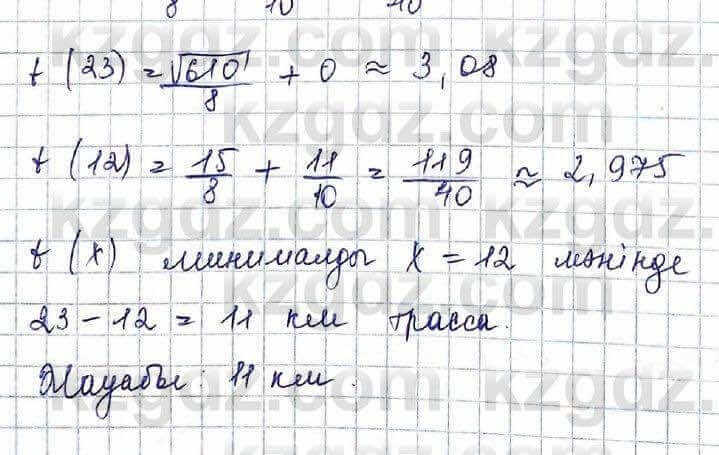 8 10 40
t(23) = √610/8 + 0 ≈ 3,08
t(12) = 15/8 + 11/10 = 119/40 ≈ 2,975
t(x) минималды x = 12 мәнінде
23 - 12 = 11 км трасса.
Жауабы: 11 км.
kzgdz.com